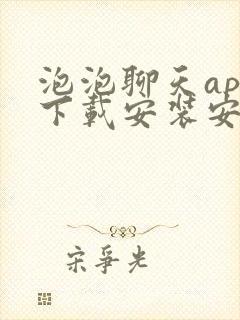 泡泡聊天ap
下载安装安
宋争光